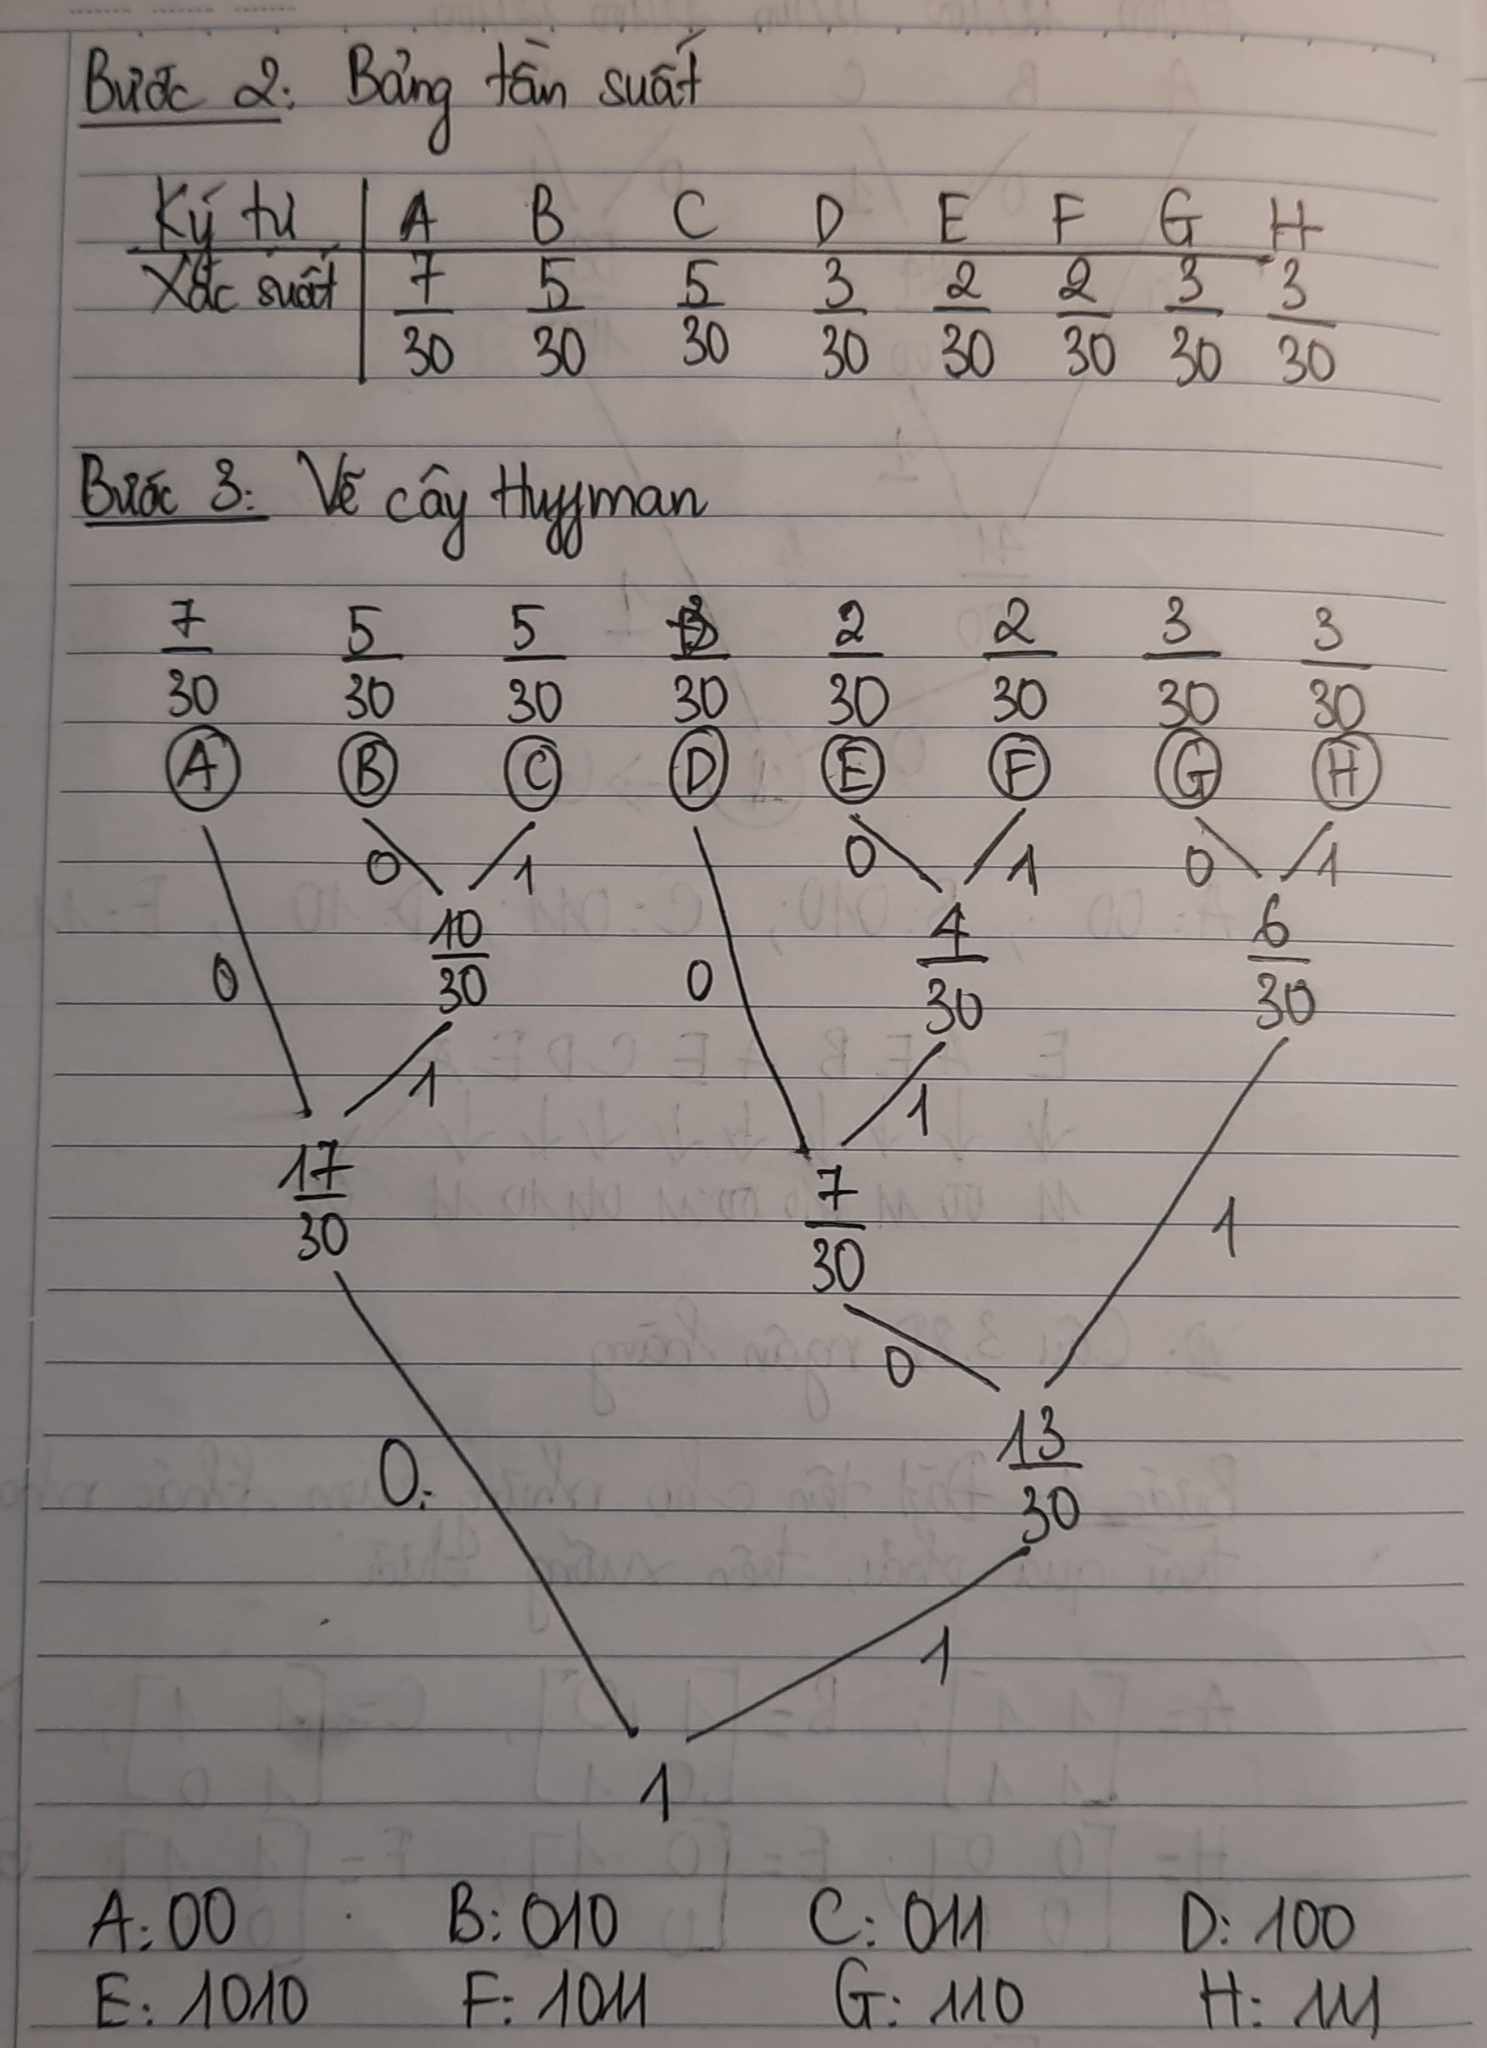 Bước 2: Bảng tần suất
Ký tự A B C D E F G H
Xác suất 7/30 5/30 5/30 3/30 2/30 2/30 3/30 3/30
Bước 3: Vẽ cây Huffman
7/30 5/30 5/30 3/30 2/30 2/30 3/30 3/30
A B C D E F G H
0 1 0 1 0 1
10/30 4/30 6/30
0 0
1 1
17/30 7/30 1
0
13/30
0:
1
1
A: 00 B: 010 C: 011 D: 100
E: 1010 F: 1011 G: 110 H: 111